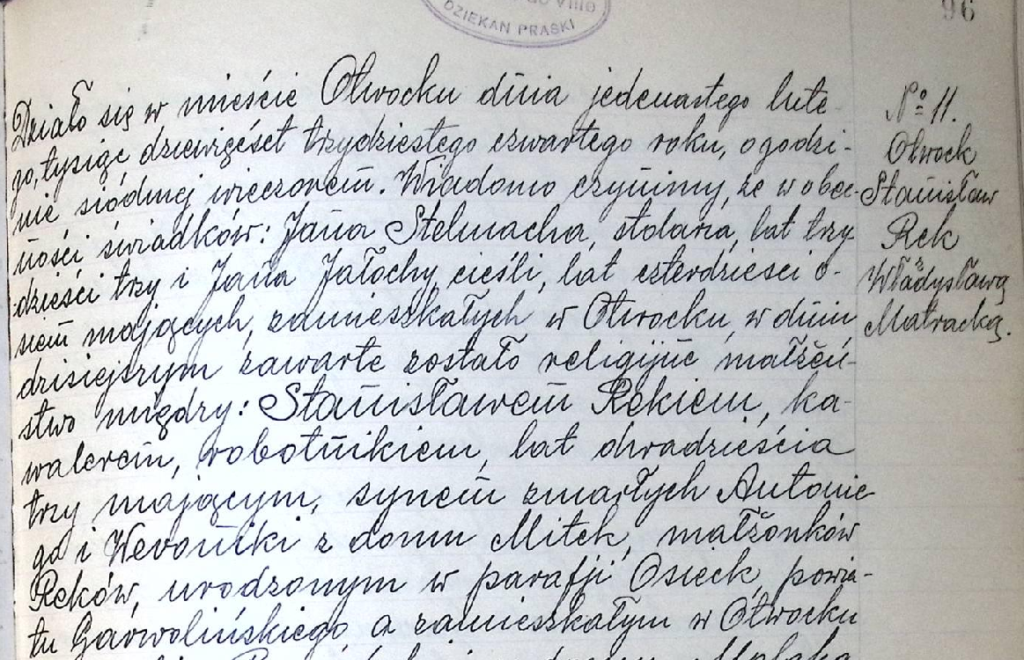 DZIEKAN PRASKI
96
Działo się w mieście Otwocku dnia jedenastego lute-
go, tysiąc dziewięćset trzydziestego czwartego roku, o godzi-
nie siódmej wieczorem. Wiadomo czynimy, że w obec-
ności świadków: Jana Stelmacha, stolarza, lat trzy
dzieści trzy i Jana Jałochy, cieśli, lat czterdzieści o-
siem mających, zamieszkałych w Otwocku, w dniu
dzisiejszym zawarte zostało religijne małżeń-
stwo między: Stanisławem Rekiem, ka-
walerem, robotnikiem, lat dwadzieścia
trzy mającym, synem zmarłych Antonie
go i Weroniki z domu Mitek, małżonków
Reków, urodzonym w parafji Osieck, powia-
tu Garwolińskiego, a zamieszkałym w Otwocku
No 11.
Otwock
Stanisław
Rek
z
Władysławą
Matracką.